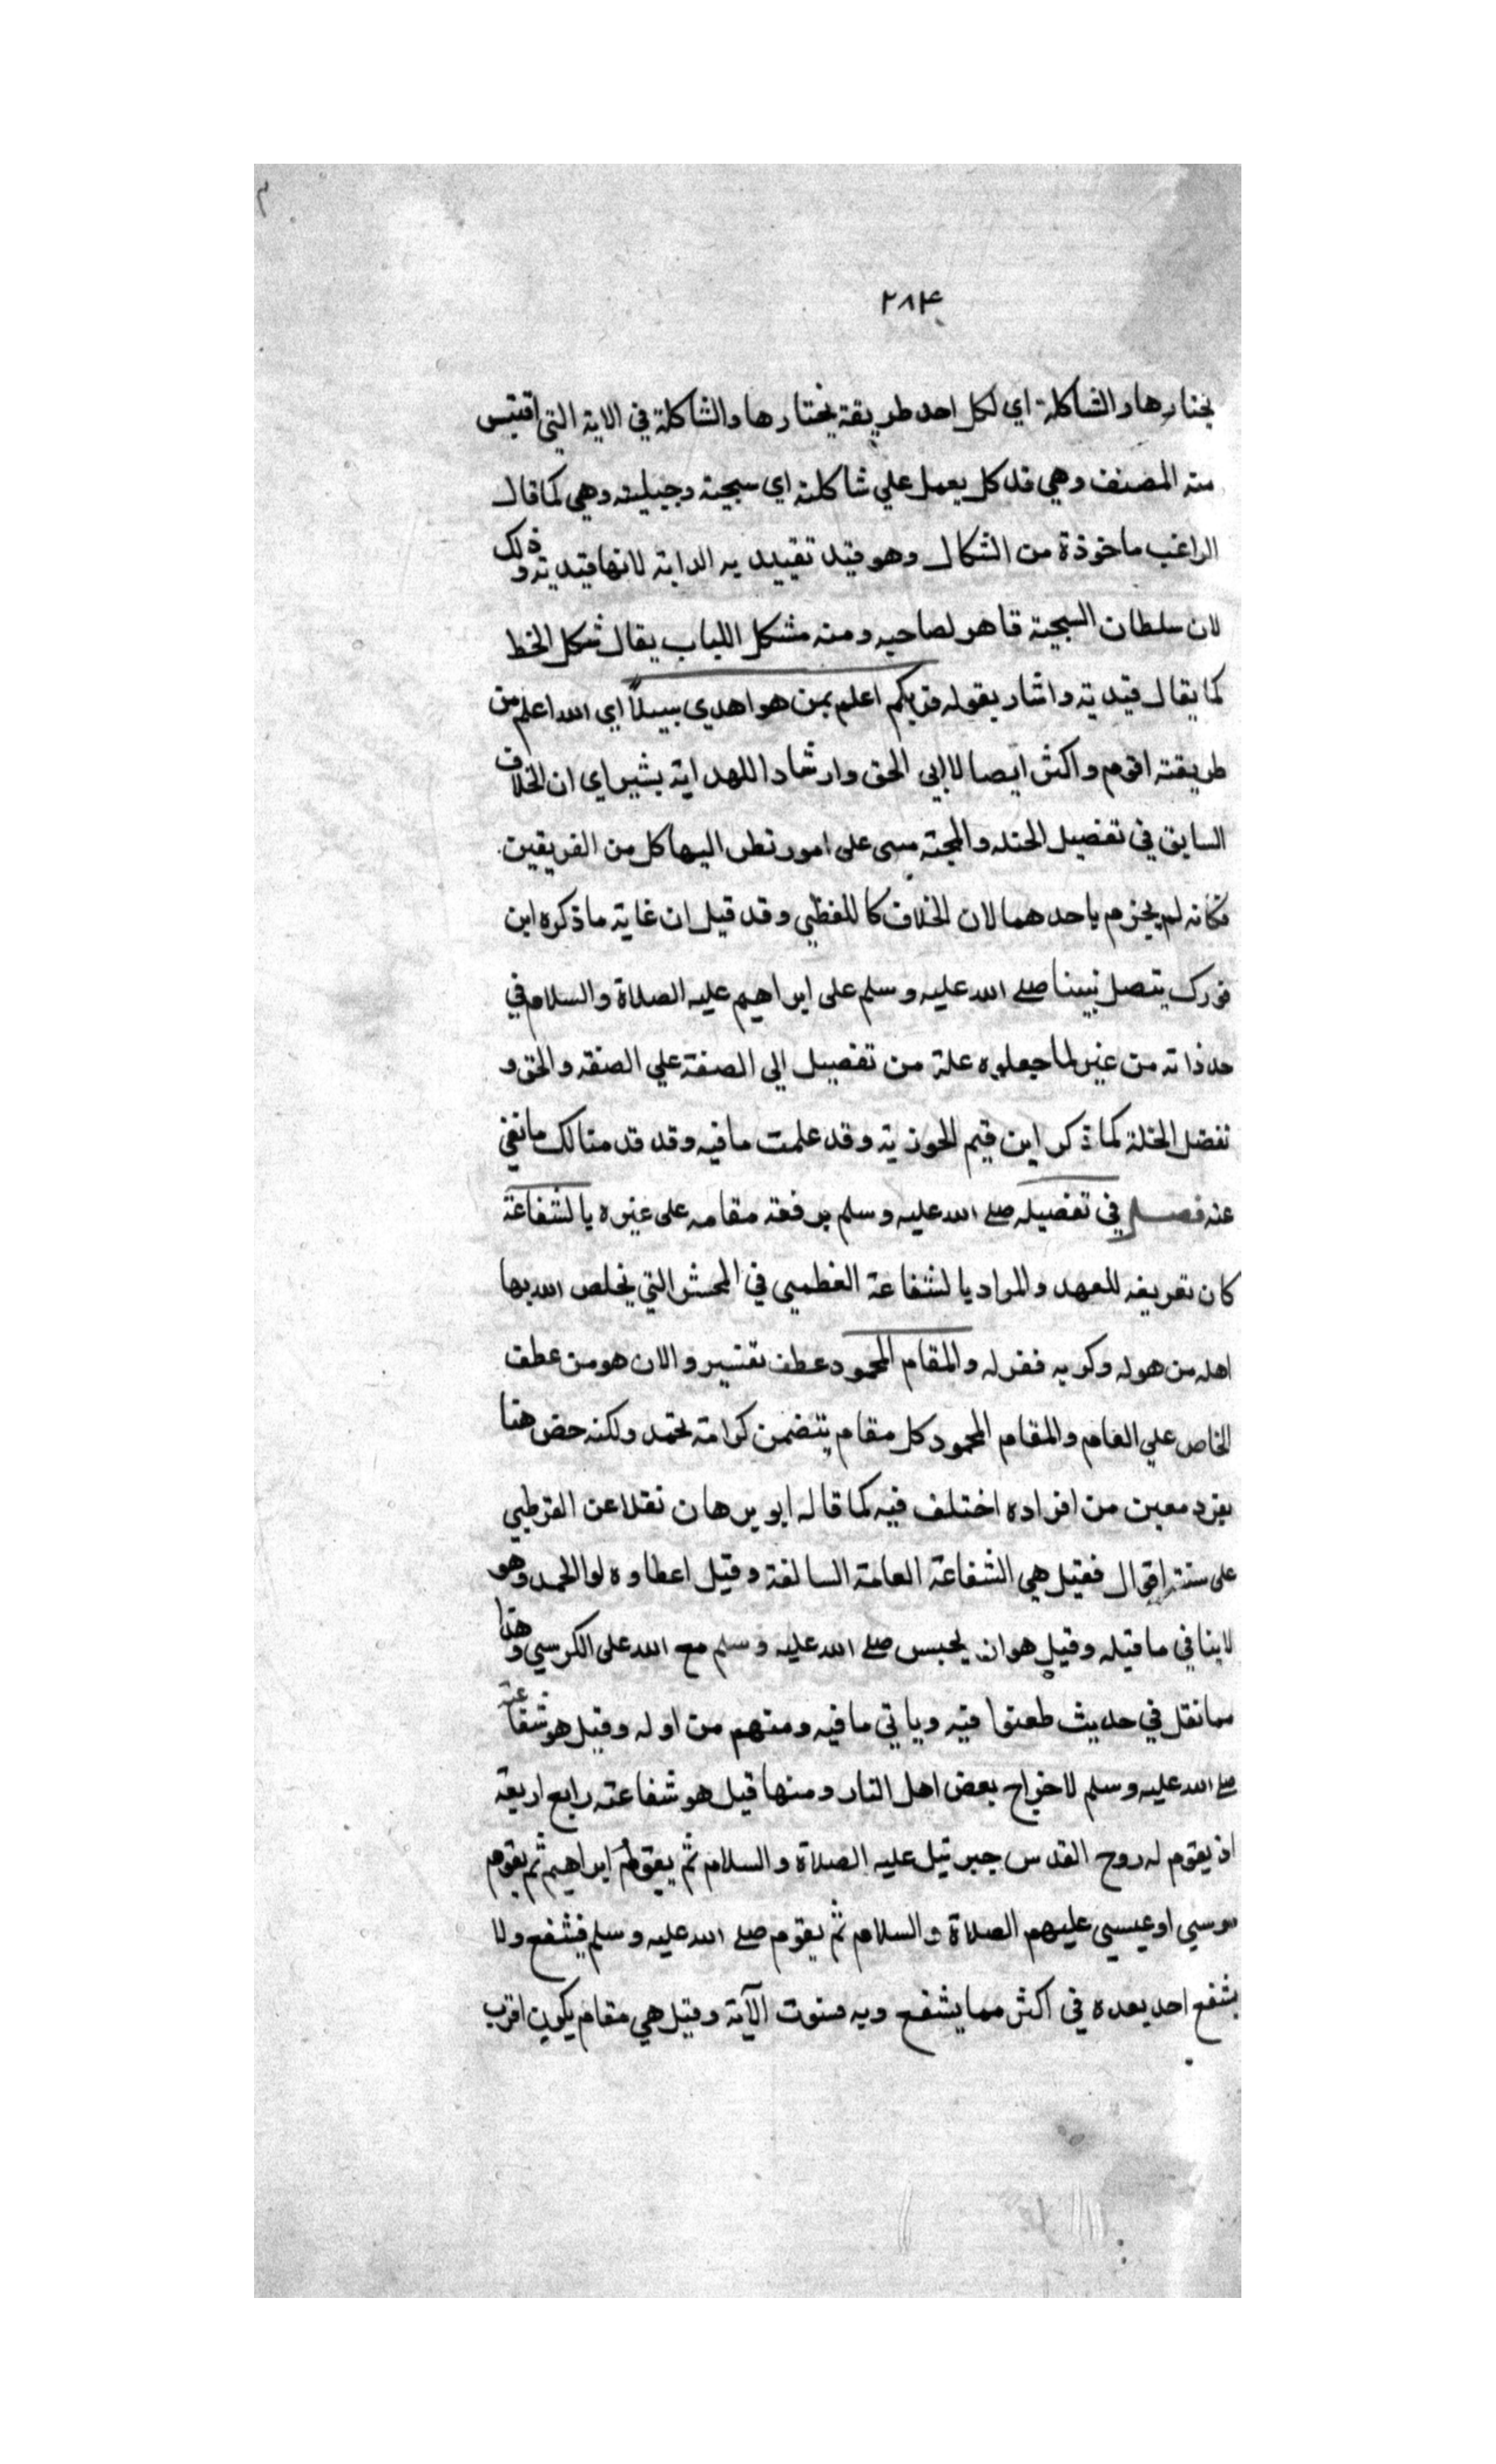 ٢٨٤
يختارها والشاكلة اي لكل احد طريقة يختارها والشاكلة في الاية التي اقتبس
منه المصنف وهي قل كل يعمل علي شاكلته اي سجيته وجبليته وهي كما قال
الراغب ماخوذة من الشكال وهو قيد تقييد به الدابة لانها قيدته وذلك
لان سلطان السجية قاهر لصاحبه ومنه مشكل اللباب يقال شكل الخط
كما يقال قيدته واشار بقوله فربكم اعلم بمن هو اهدي سبيلاً اي الله اعلم من
طريقته اقوم واكثر ايصالا الي الحق وارشادا للهداية يشير اي ان الخلاف
السابق في تفضيل الخلة والمحبة مبني على امور نظر اليها كل من الفريقين
فكانه لم يجزم باحدهما لان الخلاف كاللفظي وقد قيل ان غاية ما ذكره ابن
فورك يتصل نبينا صلي الله عليه وسلم على ابراهيم عليه الصلاة والسلام في
حد ذاته من غير لما جعلوه علة من تفضيل الي الصفة علي الصفة والحق و
تفضل الخلة كما ذكر ابن قيم الجوزية وقد علمت ما فيه وقد قدمنا لك ما نغني
عنه فصل في تفضيله صلي الله عليه وسلم برفعة مقامه على غيره بالشفاعة
كان تعريفه للعهد والمراد بالشفاعة العظمي في المحشر التي يخلص الله بها
اهله من هوله وكربه فقوله والمقام المحمود عطف تفسير والان هو من عطف
الخاص علي العام والمقام المحمود كل مقام يتضمن كرامة تحمد ولكنه خص هنا
بفرد معين من افراده اختلف فيه كما قاله ابو برهان نقلا عن القرطبي
على ستة اقوال فقيل هي الشفاعة العامة السالفة وقيل اعطاوه لوا الحمد وهو
لا ينافي ما قبله وقيل هو ان يجلس صلي الله عليه وسلم مع الله على الكرسي وهذا
مما نقل في حديث طعنوا فيه وياتي ما فيه ومنهم من اوله وقيل هو شفاعته
صلي الله عليه وسلم لاخراج بعض اهل النار ومنها قيل هو شفاعته رابع اربعة
اذ يقوم له روح القدس جبرئيل عليه الصلاة والسلام ثم يقوم ابراهيم ثم يقوم
موسي او عيسي عليهم الصلاة والسلام ثم يقوم صلي الله عليه وسلم فيشفع ولا
يشفع احد بعده في اكثر مما يشفع وبه فسرت الآية وقيل هي مقام يكون اقرب